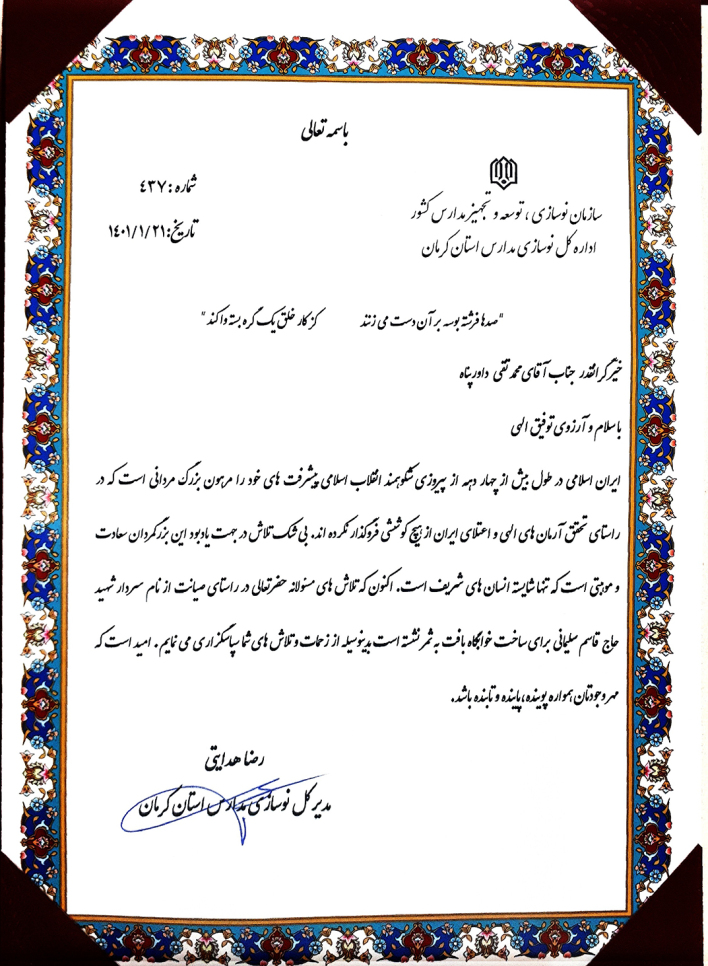 باسمه تعالی
شماره: ٤٣٧
تاریخ: ١٤٠١/١/٢١
سازمان نوسازی، توسعه و تجهیز مدارس کشور
اداره کل نوسازی مدارس استان کرمان
"صدها فرشته بوسه بر آن دست می زنند کز کار خلق یک گره بسته وا کند"
خیّر گرانقدر جناب آقای محمد تقی داورپناه
با سلام و آرزوی توفیق الهی
ایران اسلامی در طول بیش از چهار دهه از پیروزی شکوهمند انقلاب اسلامی پیشرفت های خود را مرهون بزرگ مردانی است که در
راستای تحقق آرمان های الهی و اعتلای ایران از هیچ کوششی فروگذار نکرده اند. بی شک تلاش در جهت یادبود این بزرگمردان سعادت
و موهبتی است که تنها شایسته انسان های شریف است. اکنون که تلاش های مسئولانه حضرتعالی در راستای صیانت از نام سردار شهید
حاج قاسم سلیمانی برای ساخت خوابگاه بافت به ثمر نشسته است بدینوسیله از زحمات و تلاش های شما سپاسگزاری می نمایم. امید است که
مهر وجودتان همواره پوینده، پاینده و تابنده باشد.
رضا هدایتی
مدیر کل نوسازی مدارس استان کرمان